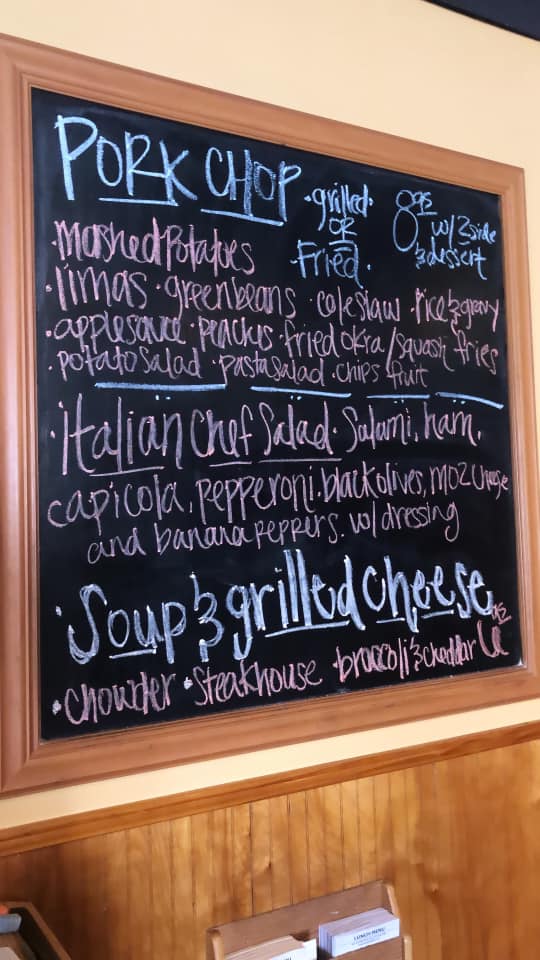 PORK CHOP
·grilled· OR Fried.
8⁹⁵ w/ 2 side & dessert
·Mashed Potatoes
·limas ·greenbeans ·coleslaw ·Rice & gravy
·applesauce ·peaches ·fried okra/squash fries
·potato salad ·pasta salad ·chips fruit
·Italian Chef Salad· Salami, ham,
capicola, pepperoni. black olives, moz cheese
and banana peppers. w/ dressing
·Soup & grilled cheese
·chowder ·steakhouse ·broccoli & cheddar
LUNCH MENU